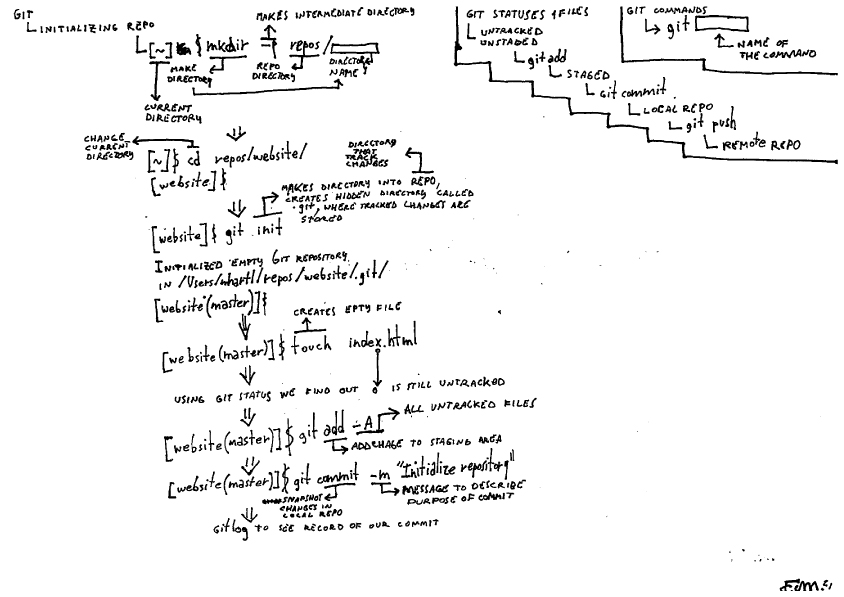 GIT
INITIALIZING REPO
MAKES INTERMEDIATE DIRECTORY
[~] $ mkdir -p repos/
MAKE DIRECTORY
REPO DIRECTORY
DIRECTORY NAME
CURRENT DIRECTORY
CHANGE CURRENT DIRECTORY
[~]$ cd repos/website/
[website]$
DIRECTORY THAT TRACK CHANGES
MAKES DIRECTORY INTO REPO,
CREATES HIDDEN DIRECTORY CALLED
.git, WHERE TRACKED CHANGES ARE
STORED
[website]$ git init
INITIALIZED EMPTY GIT REPOSITORY
IN /Users/mhartl/repos/website/.git/
[website (master)]$
CREATES EPTY FILE
[website(master)]$ touch index.html
USING GIT STATUS WE FIND OUT IS STILL UNTRACKED
ALL UNTRACKED FILES
[website(master)]$ git add -A
ADD CHAGE TO STAGING AREA
[website(master)]$ git commit -m "Initialize repository"
SNAPSHOT
CHANGES IN
LOCAL REPO
MESSAGE TO DESCRIBE
PURPOSE OF COMMIT
Git log TO SEE RECORD OF OUR COMMIT
GIT STATUSES 4 FILES
UNTRACKED
UNSTAGED
git add
STAGED
Git commit
LOCAL REPO
git push
REMOTE REPO
GIT COMMANDS
git
NAME OF
THE COMMAND